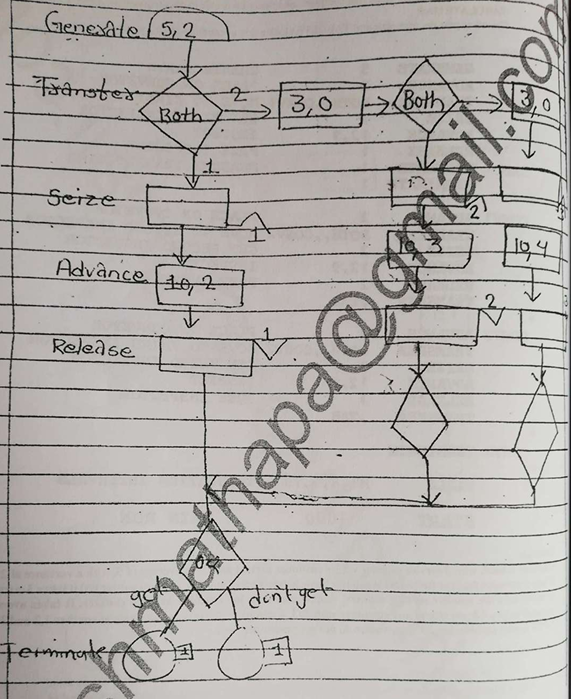 Generate 5,2
Transfer Both 2 3,0 Both 3,0
1
Seize 1 2
Advance 10,2 10,3 10,4
Release 1 2
04
get don't get
Terminate 1 1
chmathapa@gmail.com